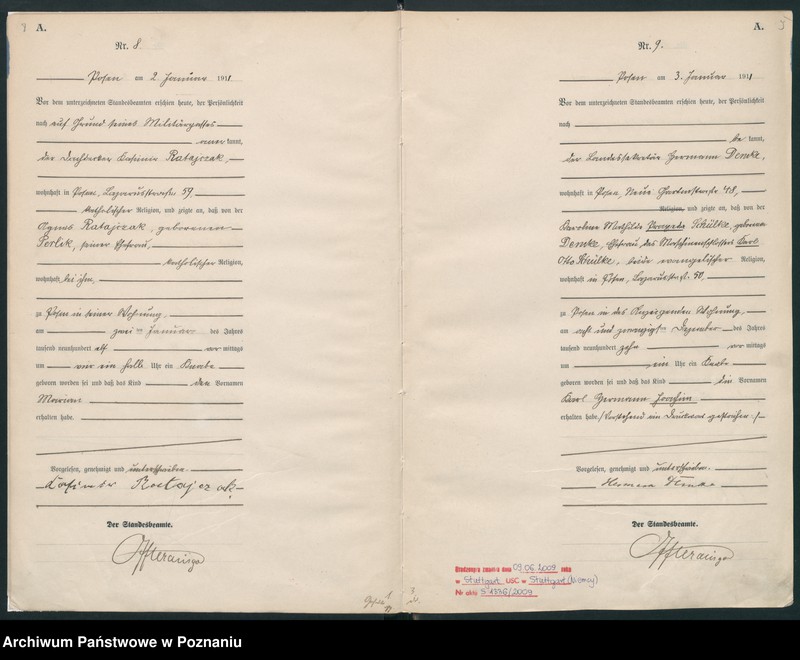 9
A.
Nr. 8.
Posen am 2. Januar 1911
Vor dem unterzeichneten Standesbeamten erschien heute, der Persönlichkeit
nach auf Grund seines Militärpasses
kannt,
der Dachdecker Kasimir Ratajczak,
wohnhaft in Posen, Lazarusstraße 59,
katholischer Religion, und zeigte an, daß von der
Agnes Ratajczak, geborenen
Perlik, seiner Ehefrau,
katholischer Religion,
wohnhaft bei ihm,
zu Posen in seiner Wohnung,
am zwei ten Januar des Jahres
tausend neunhundert elf vor mittags
um vier ein halb Uhr ein Knabe
geboren worden sei und daß das Kind den Vornamen
Marian
erhalten habe.
Vorgelesen, genehmigt und unterschrieben.
Kasimir Ratajczak
Der Standesbeamte.
A.
Nr. 9.
Posen am 3. Januar 1911
Vor dem unterzeichneten Standesbeamten erschien heute, der Persönlichkeit
nach
be kannt,
der Landessekretär Hermann Demke,
wohnhaft in Posen, Neue Gartenstraße 48,
Religion, und zeigte an, daß von der
Karoline Mathilde Schülke, geborene
Demke, Ehefrau des Maschinenschlossers Karl
Otto Schülke, beide evangelischer Religion,
wohnhaft in Posen, Lazarusstraße 50,
zu Posen in des Anzeigenden Wohnung,
am acht und zwanzigsten Dezember des Jahres
tausend neunhundert zehn vor mittags
um ein Uhr ein Knabe
geboren worden sei und daß das Kind die Vornamen
Karl Hermann Joachim
erhalten habe. /Vorstehend ein Druckwort gestrichen./
Vorgelesen, genehmigt und unterschrieben.
Hermann Demke
Der Standesbeamte.
dnia 09.06.2009 roku
w Stuttgart USC w Stuttgart (Niemcy)
Nr aktu S 1336/2009
Archiwum Państwowe w Poznaniu